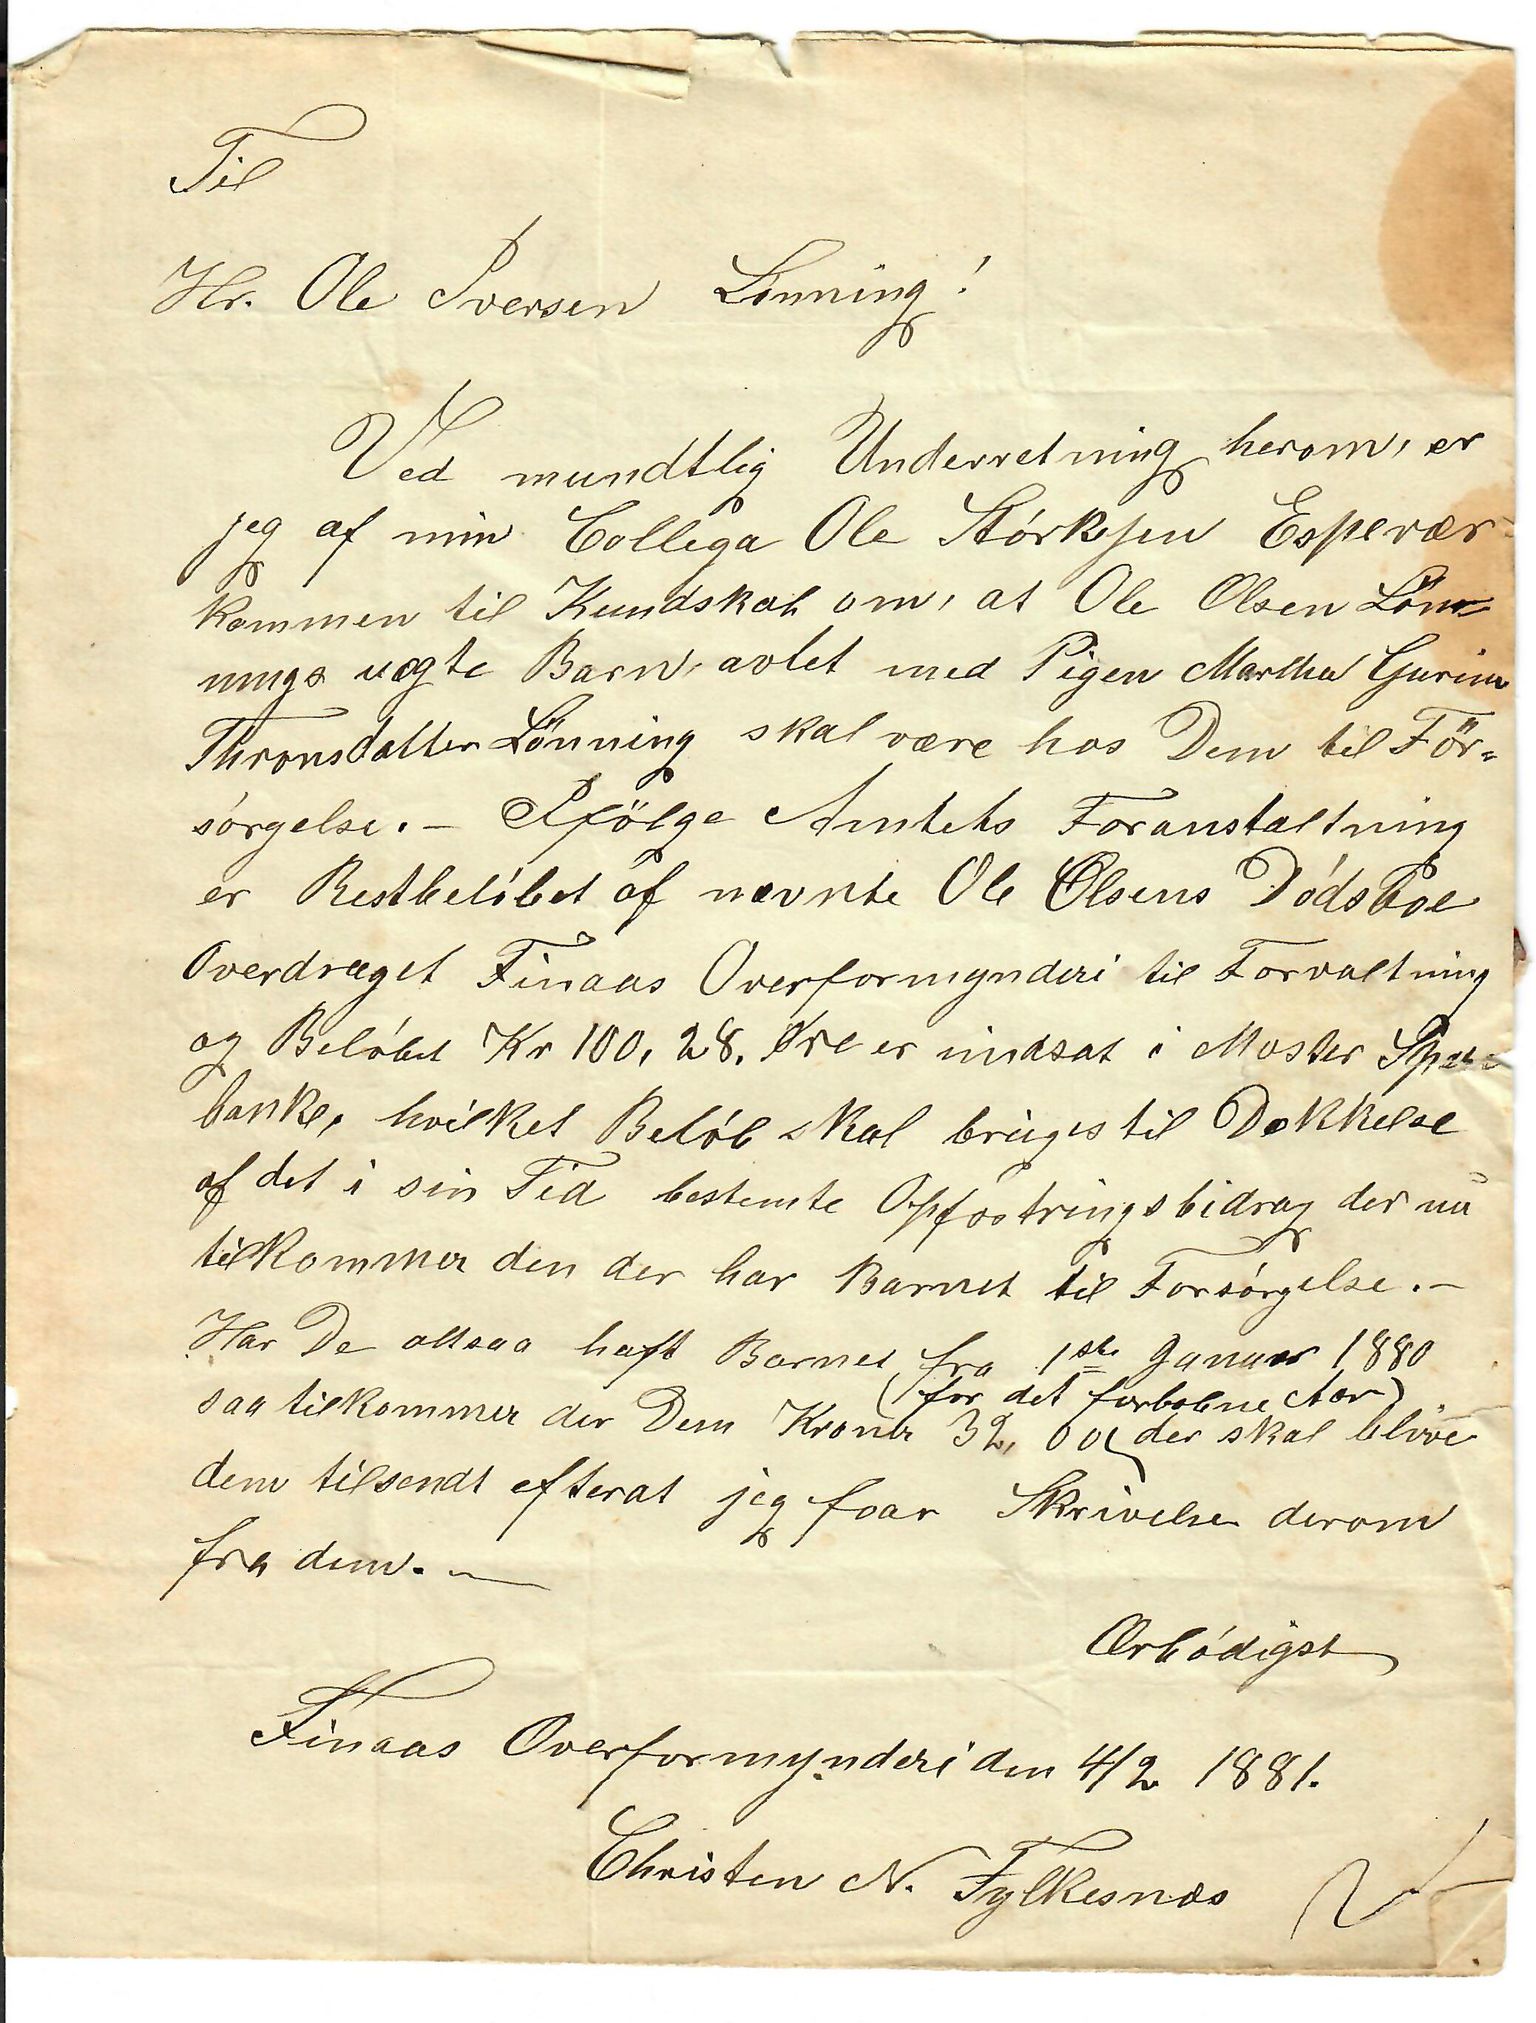 Til
Hr. Ole Iversen Lönning!
Ved mundtlig Underretning herom, er
jeg af min Collega Ole Störksen Espevær
kommen til Kundskab om, at Ole Olsen Lön-
nings uægte Barn, avlet med Pigen Martha Gurine
Thronsdatter Lönning skal være hos Dem til För-
sörgelse. - Ifölge Amtets Foranstaltning
er Restbelöbet af nævnte Ole Olsens Dödsboe
Overdraget Finaas Overformynderi til Forvaltning
og Belöbet Kr 100, 28. Øre er indsat i Moster Spare-
banke, hvilket Belöb skal brüges til Dekkelse
af det i sin Tid bestemte Opfostringsbidrag der nu
tilkommer den der har Barnet til Forsörgelse. -
Har De altsaa haft Barnet fra 1ste Januar 1880
(for det forløbne Aar)
saa tilkommer der Dem Kroner 32, 00 der skal blive
dem tilsendt efterat jeg faar Skrivelse derom
fra dem. -
Ærbödigst
Finaas Overformynderi den 4/2 1881.
Christen N. Fylkesnæs